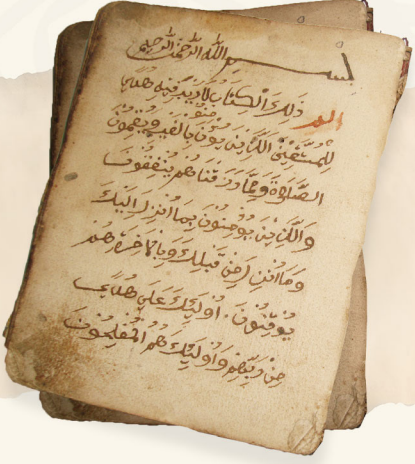 بسم الله الرحمن الرحيم
الم ذَلِكَ الْكِتَابُ لَا رَيْبَ فِيهِ هُدًى
لِلْمُتَّقِينَ الَّذِينَ يُومِنُونَ بِالْغَيْبِ وَيُقِيمُونَ
الصَّلَاةَ وَمِمَّا رَزَقْنَاهُمْ يُنْفِقُونَ
وَالَّذِينَ يُوْمِنُونَ بِمَا أُنْزِلَ إِلَيْكَ
وَمَا أُنْزِلَ مِنْ قَبْلِكَ وَبِالْآخِرَةِ هُمْ
يُوقِنُونَ . أُولَئِكَ عَلَى هُدًى
مِنْ رَبِّهِمْ وَأُولَئِكَ هُمُ الْمُفْلِحُونَ